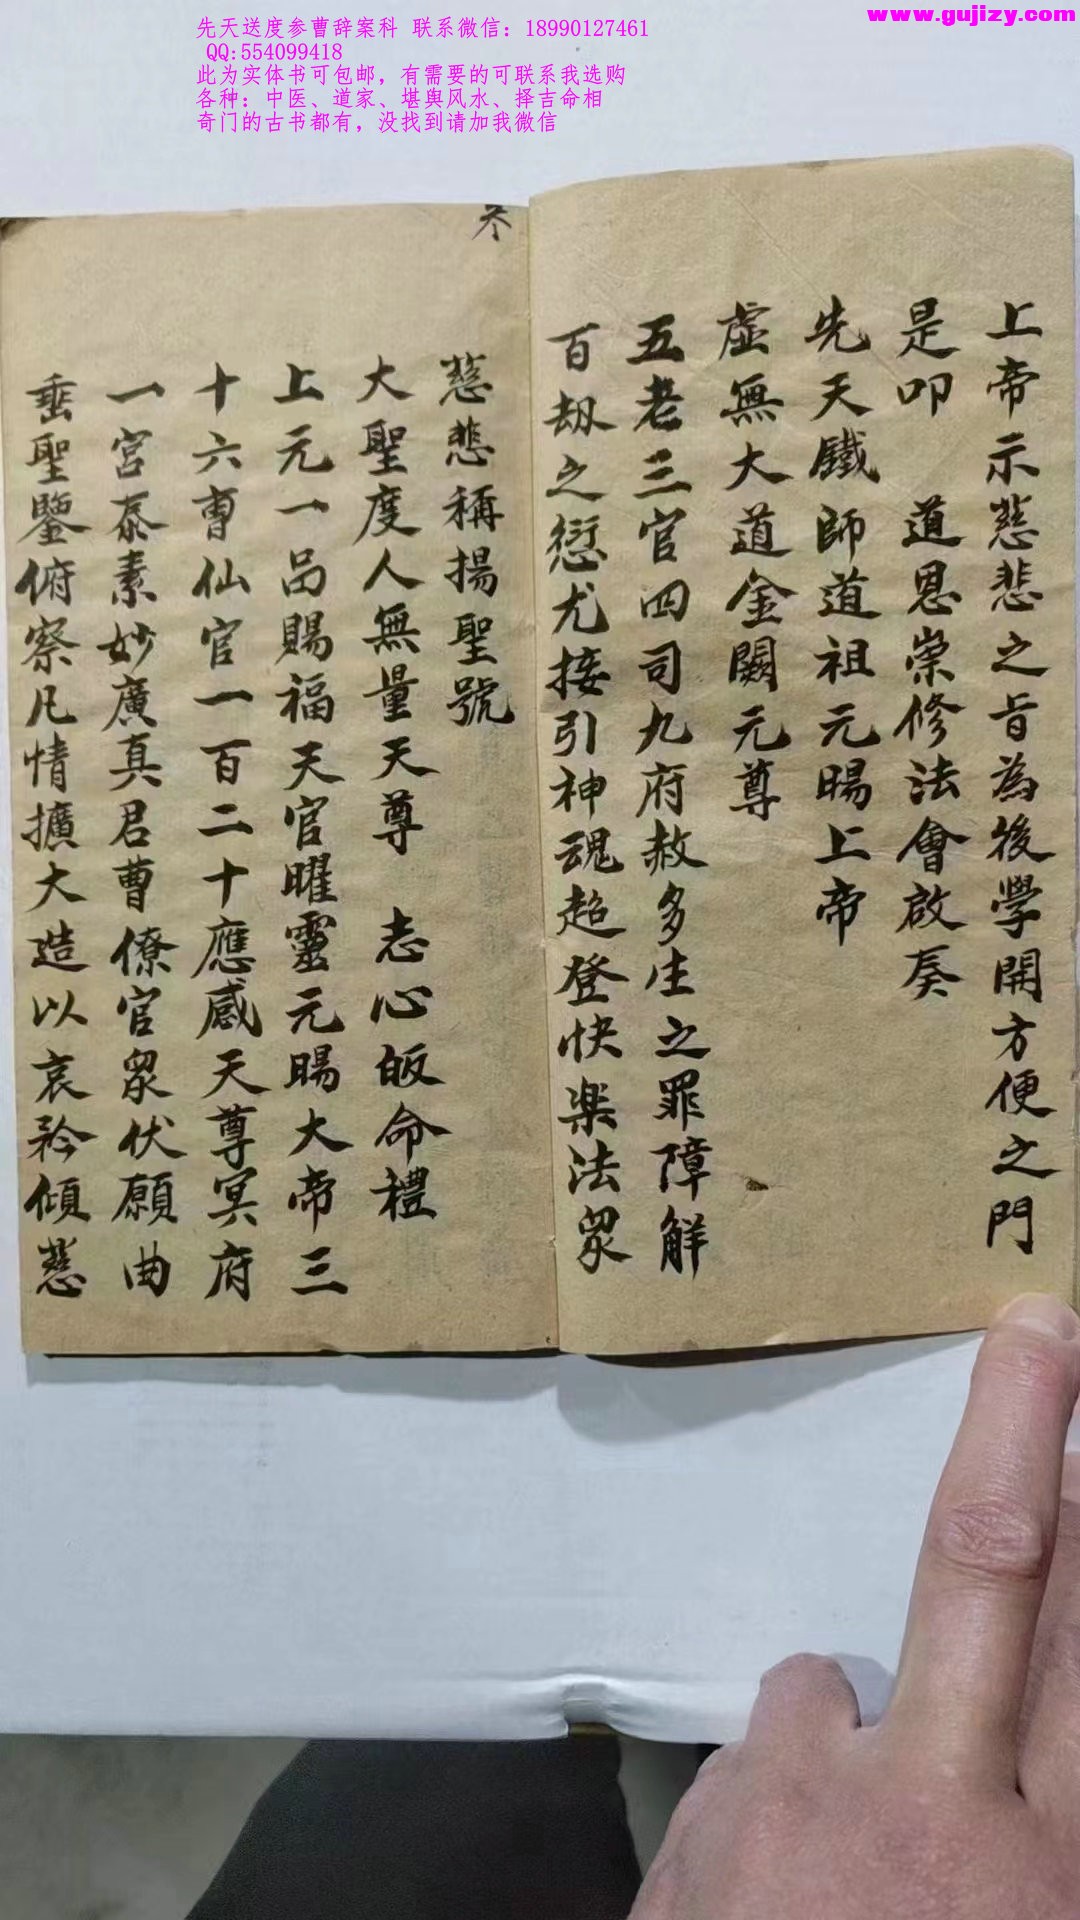 www.gujizy.com
先天送度参曹辞案科 联系微信：18990127461
QQ:554099418
此为实体书可包邮，有需要的可联系我选购
各种：中医、道家、堪舆风水、择吉命相
奇门的古书都有，没找到请加我微信
上帝示慈悲之旨為後學開方便之門
是叩 道恩崇修法會啟奏
先天鐵師道祖元暘上帝
虛無大道金闕元尊
五老三官四司九府赦多生之罪障解
百劫之愆尤接引神魂超登快楽法眾
慈悲稱揚聖號
大聖度人無量天尊 志心皈命禮
上元一品賜福天官曜靈元暘大帝三
十六曹仙官一百二十應感天尊冥府
一宮泰素妙廣真君曹僚官眾伏願曲
垂聖鑒俯察凡情擴大造以哀矜傾慈